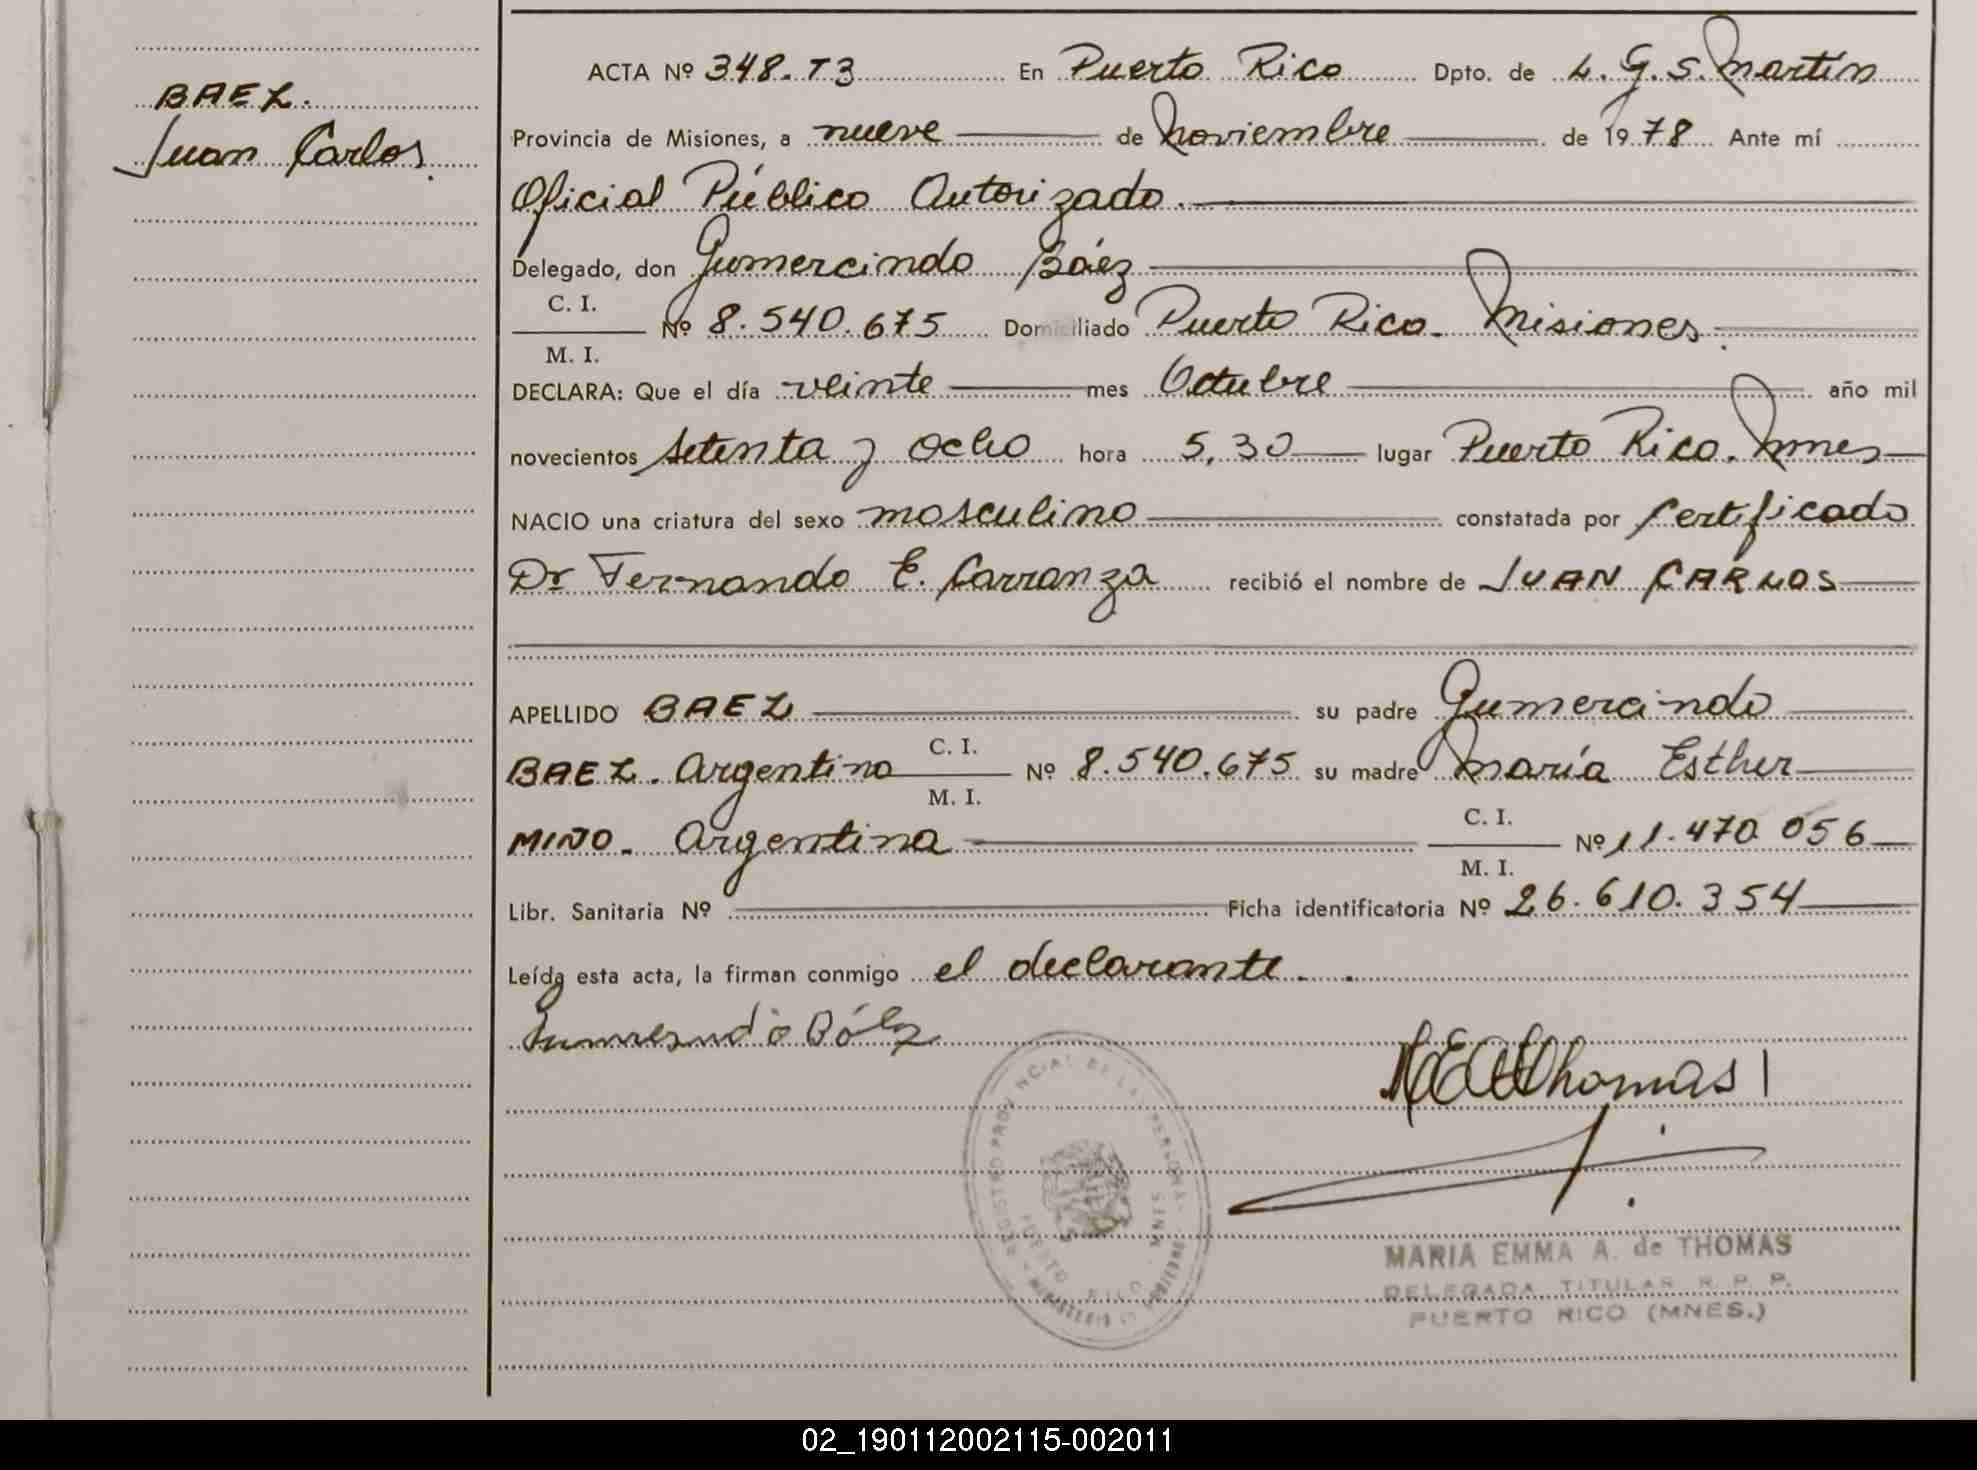 BAEZ.
Juan Carlos.
ACTA Nº 348.T3 En Puerto Rico Dpto. de L. G. S. Martín
Provincia de Misiones, a nueve de Noviembre de 1978 Ante mí
Oficial Público Autorizado.
Delegado, don Gumercindo Báez
C. I.
Nº 8.540.675 Domiciliado Puerto Rico. Misiones.
M. I.
DECLARA: Que el día veinte mes Octubre año mil
novecientos setenta y ocho hora 5,30 lugar Puerto Rico. Mnes
NACIO una criatura del sexo masculino constatada por Certificado
Dr Fernando E. Carranza recibió el nombre de JUAN CARLOS
APELLIDO BAEZ su padre Gumercindo
BAEZ. Argentino C. I. Nº 8.540.675 su madre María Esther
M. I.
MIÑO. Argentina C. I. Nº 11.470.056
M. I.
Libr. Sanitaria Nº Ficha identificatoria Nº 26.610.354
Leída esta acta, la firman conmigo el declarante.
Gumersindo Báez
Thomas
REGISTRO PROVINCIAL DE LAS PERSONAS
PUERTO RICO - MNES
MINISTERIO DE GOBIERNO
MARIA EMMA A. de THOMAS
DELEGADA TITULAR R. P. P.
PUERTO RICO (MNES.)
02_190112002115-002011